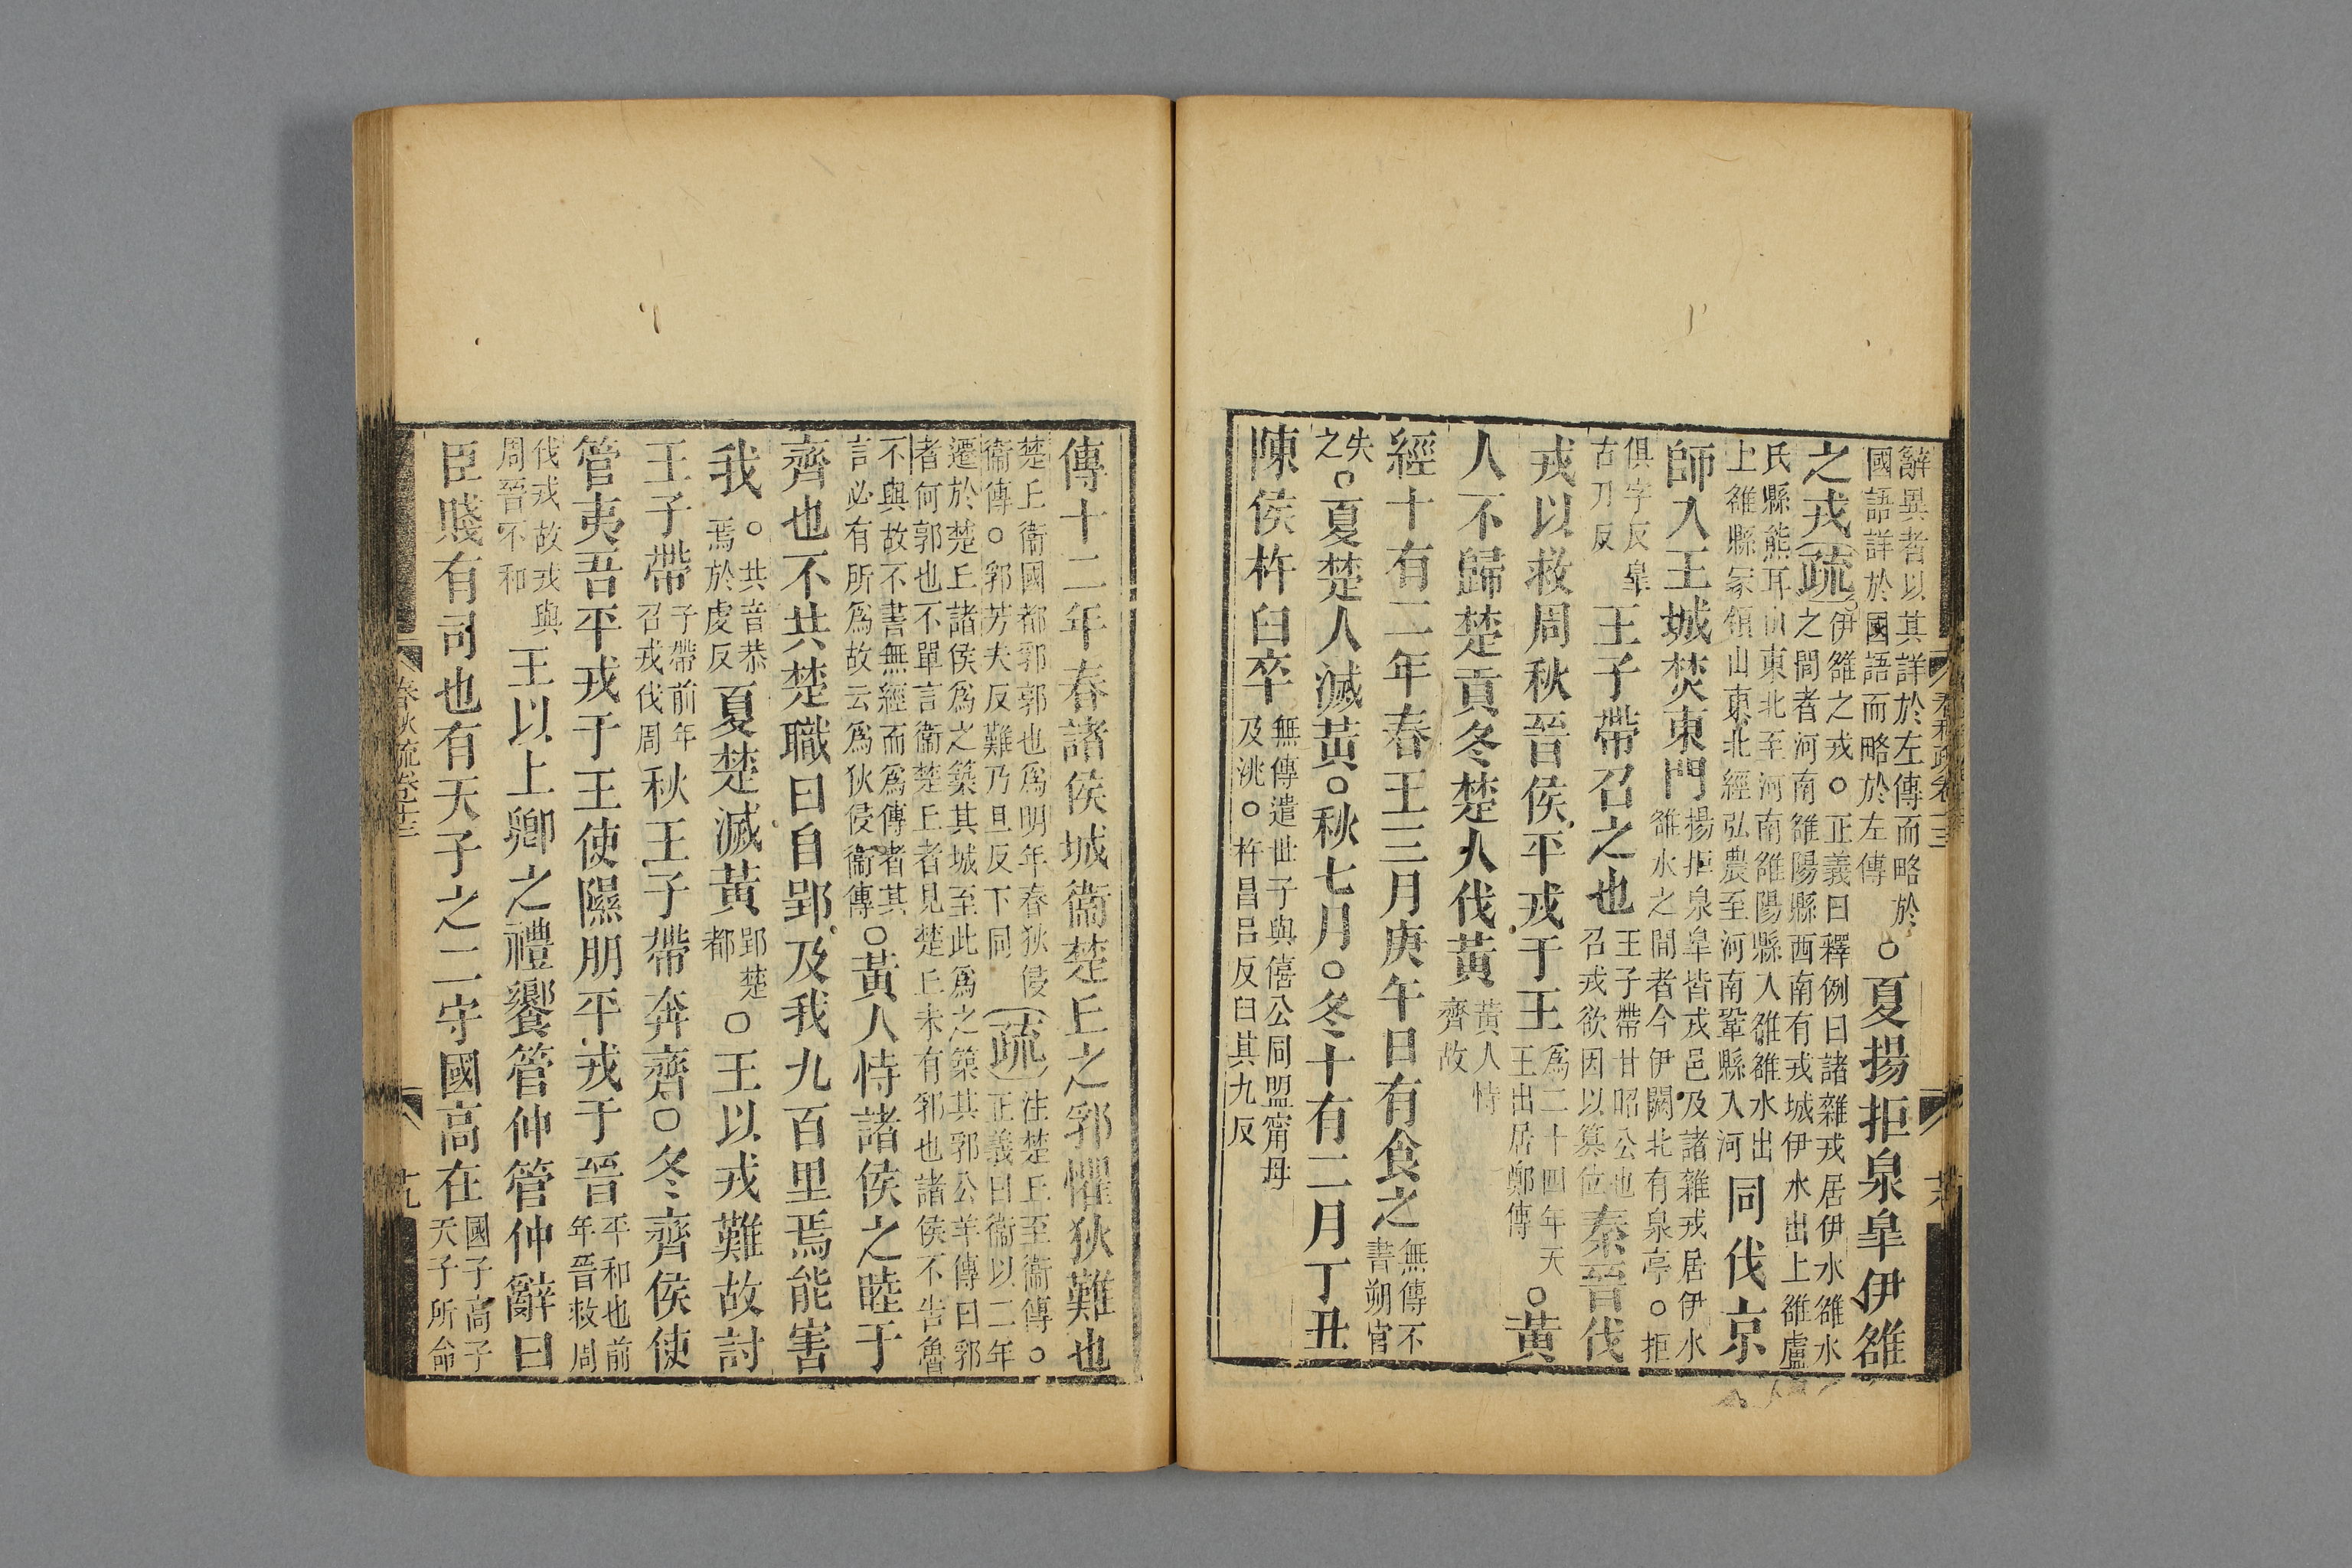 辭異者以其詳於左傳而略於
國語詳於國語而略於左傳
○夏揚拒泉皐伊雒
之戎
疏
伊雒之戎○正義曰釋例曰諸雜戎居伊水雒水
之間者河南雒陽縣西南有戎城伊水出上雒盧
氏縣熊耳山東北至河南雒陽縣入雒雒水出
上雒縣冢領山東北經弘農至河南鞏縣入河
同伐京
師入王城焚東門
揚拒泉皐皆戎邑及諸雜戎居伊水
雒水之間者今伊闕北有泉亭○拒
俱字反皐
古刀反
王子帶召之也
王子帶甘昭公也
召戎欲因以篡位
秦晉伐
戎以救周秋晉侯平戎于王
爲二十四年天
王出居鄭傳
○黃
人不歸楚貢冬楚人伐黃
黃人恃
齊故
經十有二年春王三月庚午日有食之
無傳不
書朔官
失
之
○夏楚人滅黃○秋七月○冬十有二月丁丑
陳侯杵臼卒
無傳遣世子與僖公同盟甯母
及洮○杵昌呂反臼其九反
傳十二年春諸侯城衞楚丘之郛懼狄難也
楚丘衞國都郛郭也爲明年春狄侵
衞傳○郛芳夫反難乃旦反下同
疏
注楚丘至衞傳○
正義曰衞以二年
遷於楚丘諸侯爲之築其城至此爲之築其郛公羊傳曰郛
者何郭也不單言衞楚丘者見楚丘未有郛也諸侯不告魯
不與故不書無經而爲傳者其
言必有所爲故云爲狄侵衞傳
○黃人恃諸侯之睦于
齊也不共楚職曰自郢及我九百里焉能害
我
○共音恭
焉於虔反
夏楚滅黃
郢楚
都
○王以戎難故討
王子帶
子帶前年
召戎伐周
秋王子帶奔齊○冬齊侯使
管夷吾平戎于王使隰朋平戎于晉
平和也前
年晉救周
伐戎故戎與
周晉不和
王以上卿之禮饗管仲管仲辭曰
臣賤有司也有天子之二守國高在
國子高子
天子所命
春秋疏卷十三